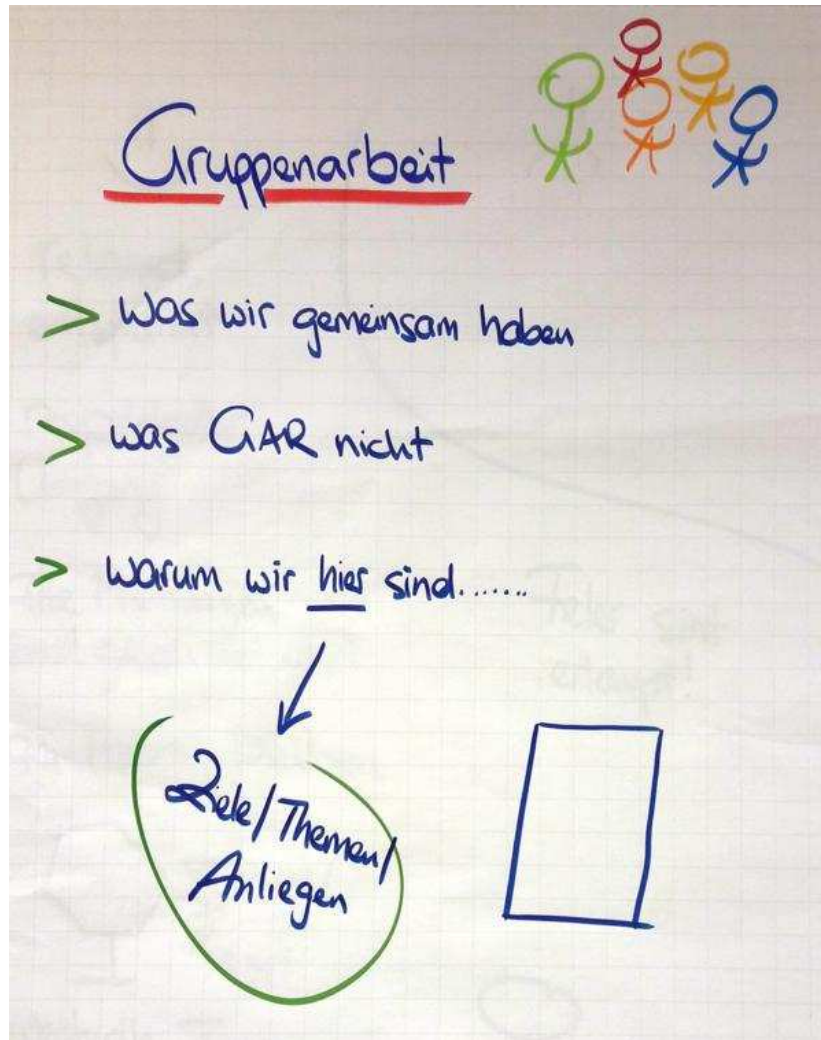 Gruppenarbeit
> Was wir gemeinsam haben
> was GAR nicht
> warum wir hier sind.......
Ziele/Themen/
Anliegen